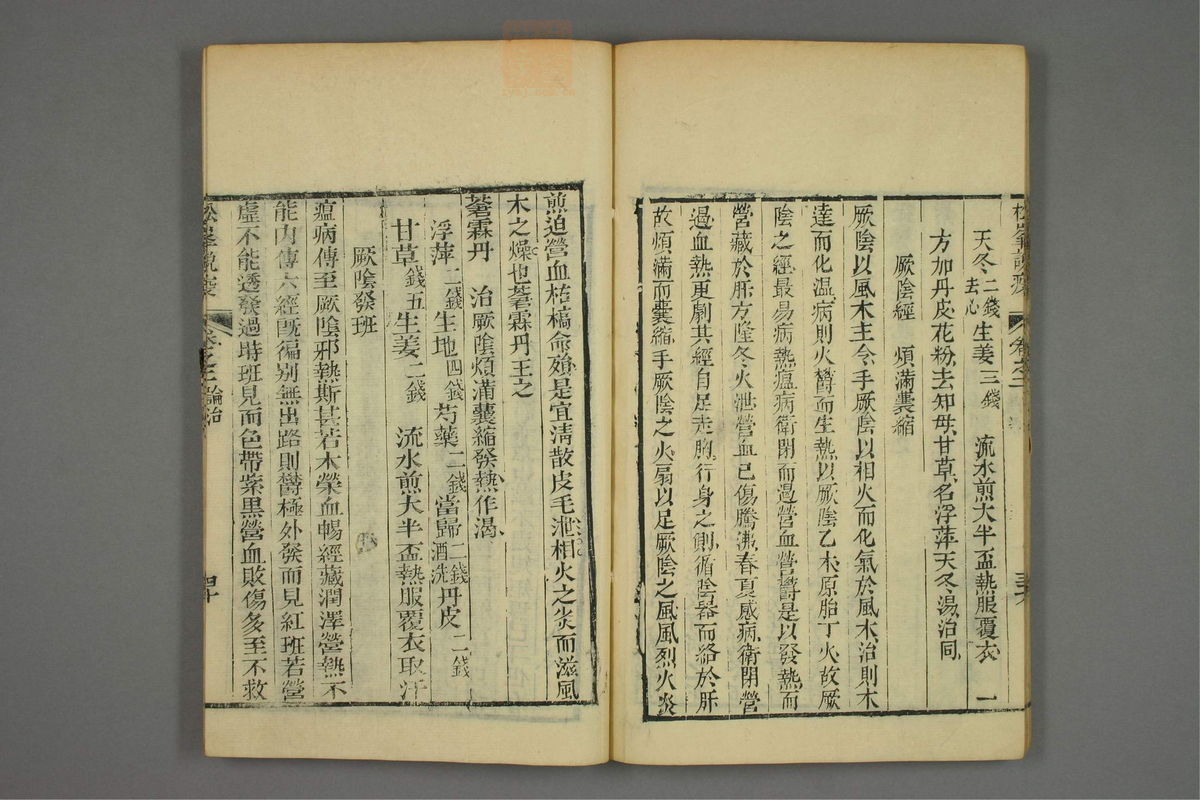 松峯說疫
卷之二
天冬二錢去心 生姜三錢 流水煎大半盃熱服覆衣 一
方加丹皮花粉去知母甘草名浮萍天冬湯治同
厥陰經 煩滿囊縮
厥陰以風木主令手厥陰以相火而化氣於風木治則木
達而化温病則火鬱而生熱以厥陰乙木原胎丁火故厥
陰之經最易病熱瘟病衛閉而遏營血營鬱是以發熱而
營藏於肝方隆冬火泄營血已傷騰沸春夏感病衛閉營
遏血熱更劇其經自足走胸行身之側循陰器而絡於肝
故煩滿而囊縮手厥陰之火扇以足厥陰之風風烈火炎
煎迫營血枯槁命殞是宜清散皮毛泄相火之炎而滋風
木之燥也蒼霖丹王之
蒼霖丹 治厥陰煩滿囊縮發熱作渴
浮萍二錢 生地四錢 芍藥二錢 當歸二錢酒洗 丹皮二錢
甘草錢五 生姜二錢 流水煎大半盃熱服覆衣取汗
厥陰發班
瘟病傳至厥陰邪熱斯甚若木榮血暢經藏潤澤營熱不
能內傳六經既徧別無出路則鬱極外發而見紅班若營
虛不能透發過時班見而色帶紫黑營血敗傷多至不救
松峯說疫
卷之二 論治
四十